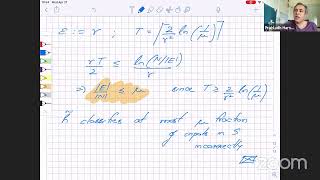 ε := γ ; T = ⌈2/γ² ln(1/μ)⌉
γT/2 ≤ ln(N/|E|)/γ
⇒ |E|/|N| ≤ μ since T ≥ 2/γ² ln(1/μ)
h̃ classifies at most μ fraction
of inputs in S
incorrectly
zoom